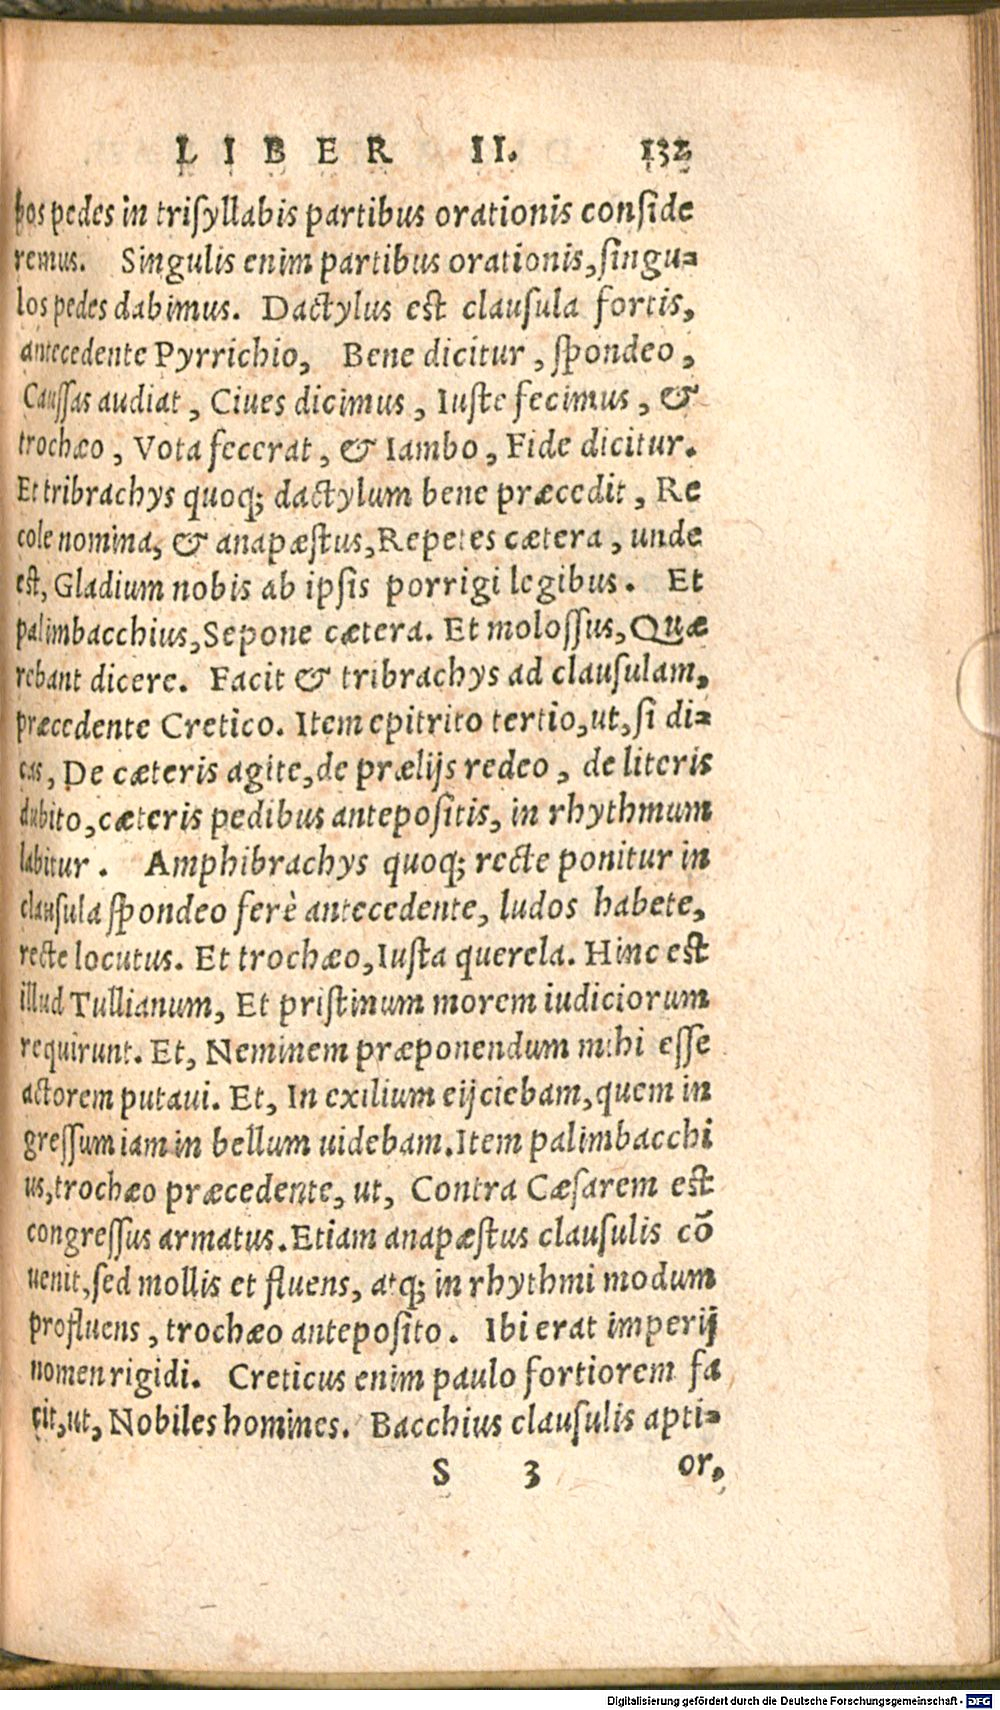 LIBER II. 132
hos pedes in trisyllabis partibus orationis conside
remus. Singulis enim partibus orationis, singu=
los pedes dabimus. Dactylus est clausula fortis,
antecedente Pyrrichio, Bene dicitur, spondeo,
Caussas audiat, Ciues dicimus, Iuste fecimus, &
trochæo, Vota fecerat, & Iambo, Fide dicitur.
Et tribrachys quoq; dactylum bene præcedit, Re
cole nomina, & anapæstus, Repetes cætera, unde
est, Gladium nobis ab ipsis porrigi legibus. Et
palimbacchius, Sepone cætera. Et molossus, Quæ
rebant dicere. Facit & tribrachys ad clausulam,
præcedente Cretico. Item epitrito tertio, ut, si di=
cas, De cæteris agite, de prælijs redeo, de literis
dubito, cæteris pedibus antepositis, in rhythmum
labitur. Amphibrachys quoq; recte ponitur in
clausula spondeo ferè antecedente, ludos habete,
recte locutus. Et trochæo, Iusta querela. Hinc est
illud Tullianum, Et pristinum morem iudiciorum
requirunt. Et, Neminem præponendum mihi esse
actorem putaui. Et, In exilium eijciebam, quem in
gressum iam in bellum uidebam. Item palimbacchi
us, trochæo præcedente, ut, Contra Cæsarem est
congressus armatus. Etiam anapæstus clausulis cō
uenit, sed mollis et fluens, atq; in rhythmi modum
profluens, trochæo anteposito. Ibi erat imperij
nomen rigidi. Creticus enim paulo fortiorem fa
cit, ut, Nobiles homines. Bacchius clausulis apti=
S 3 or,
Digitalisierung gefördert durch die Deutsche Forschungsgemeinschaft - DFG